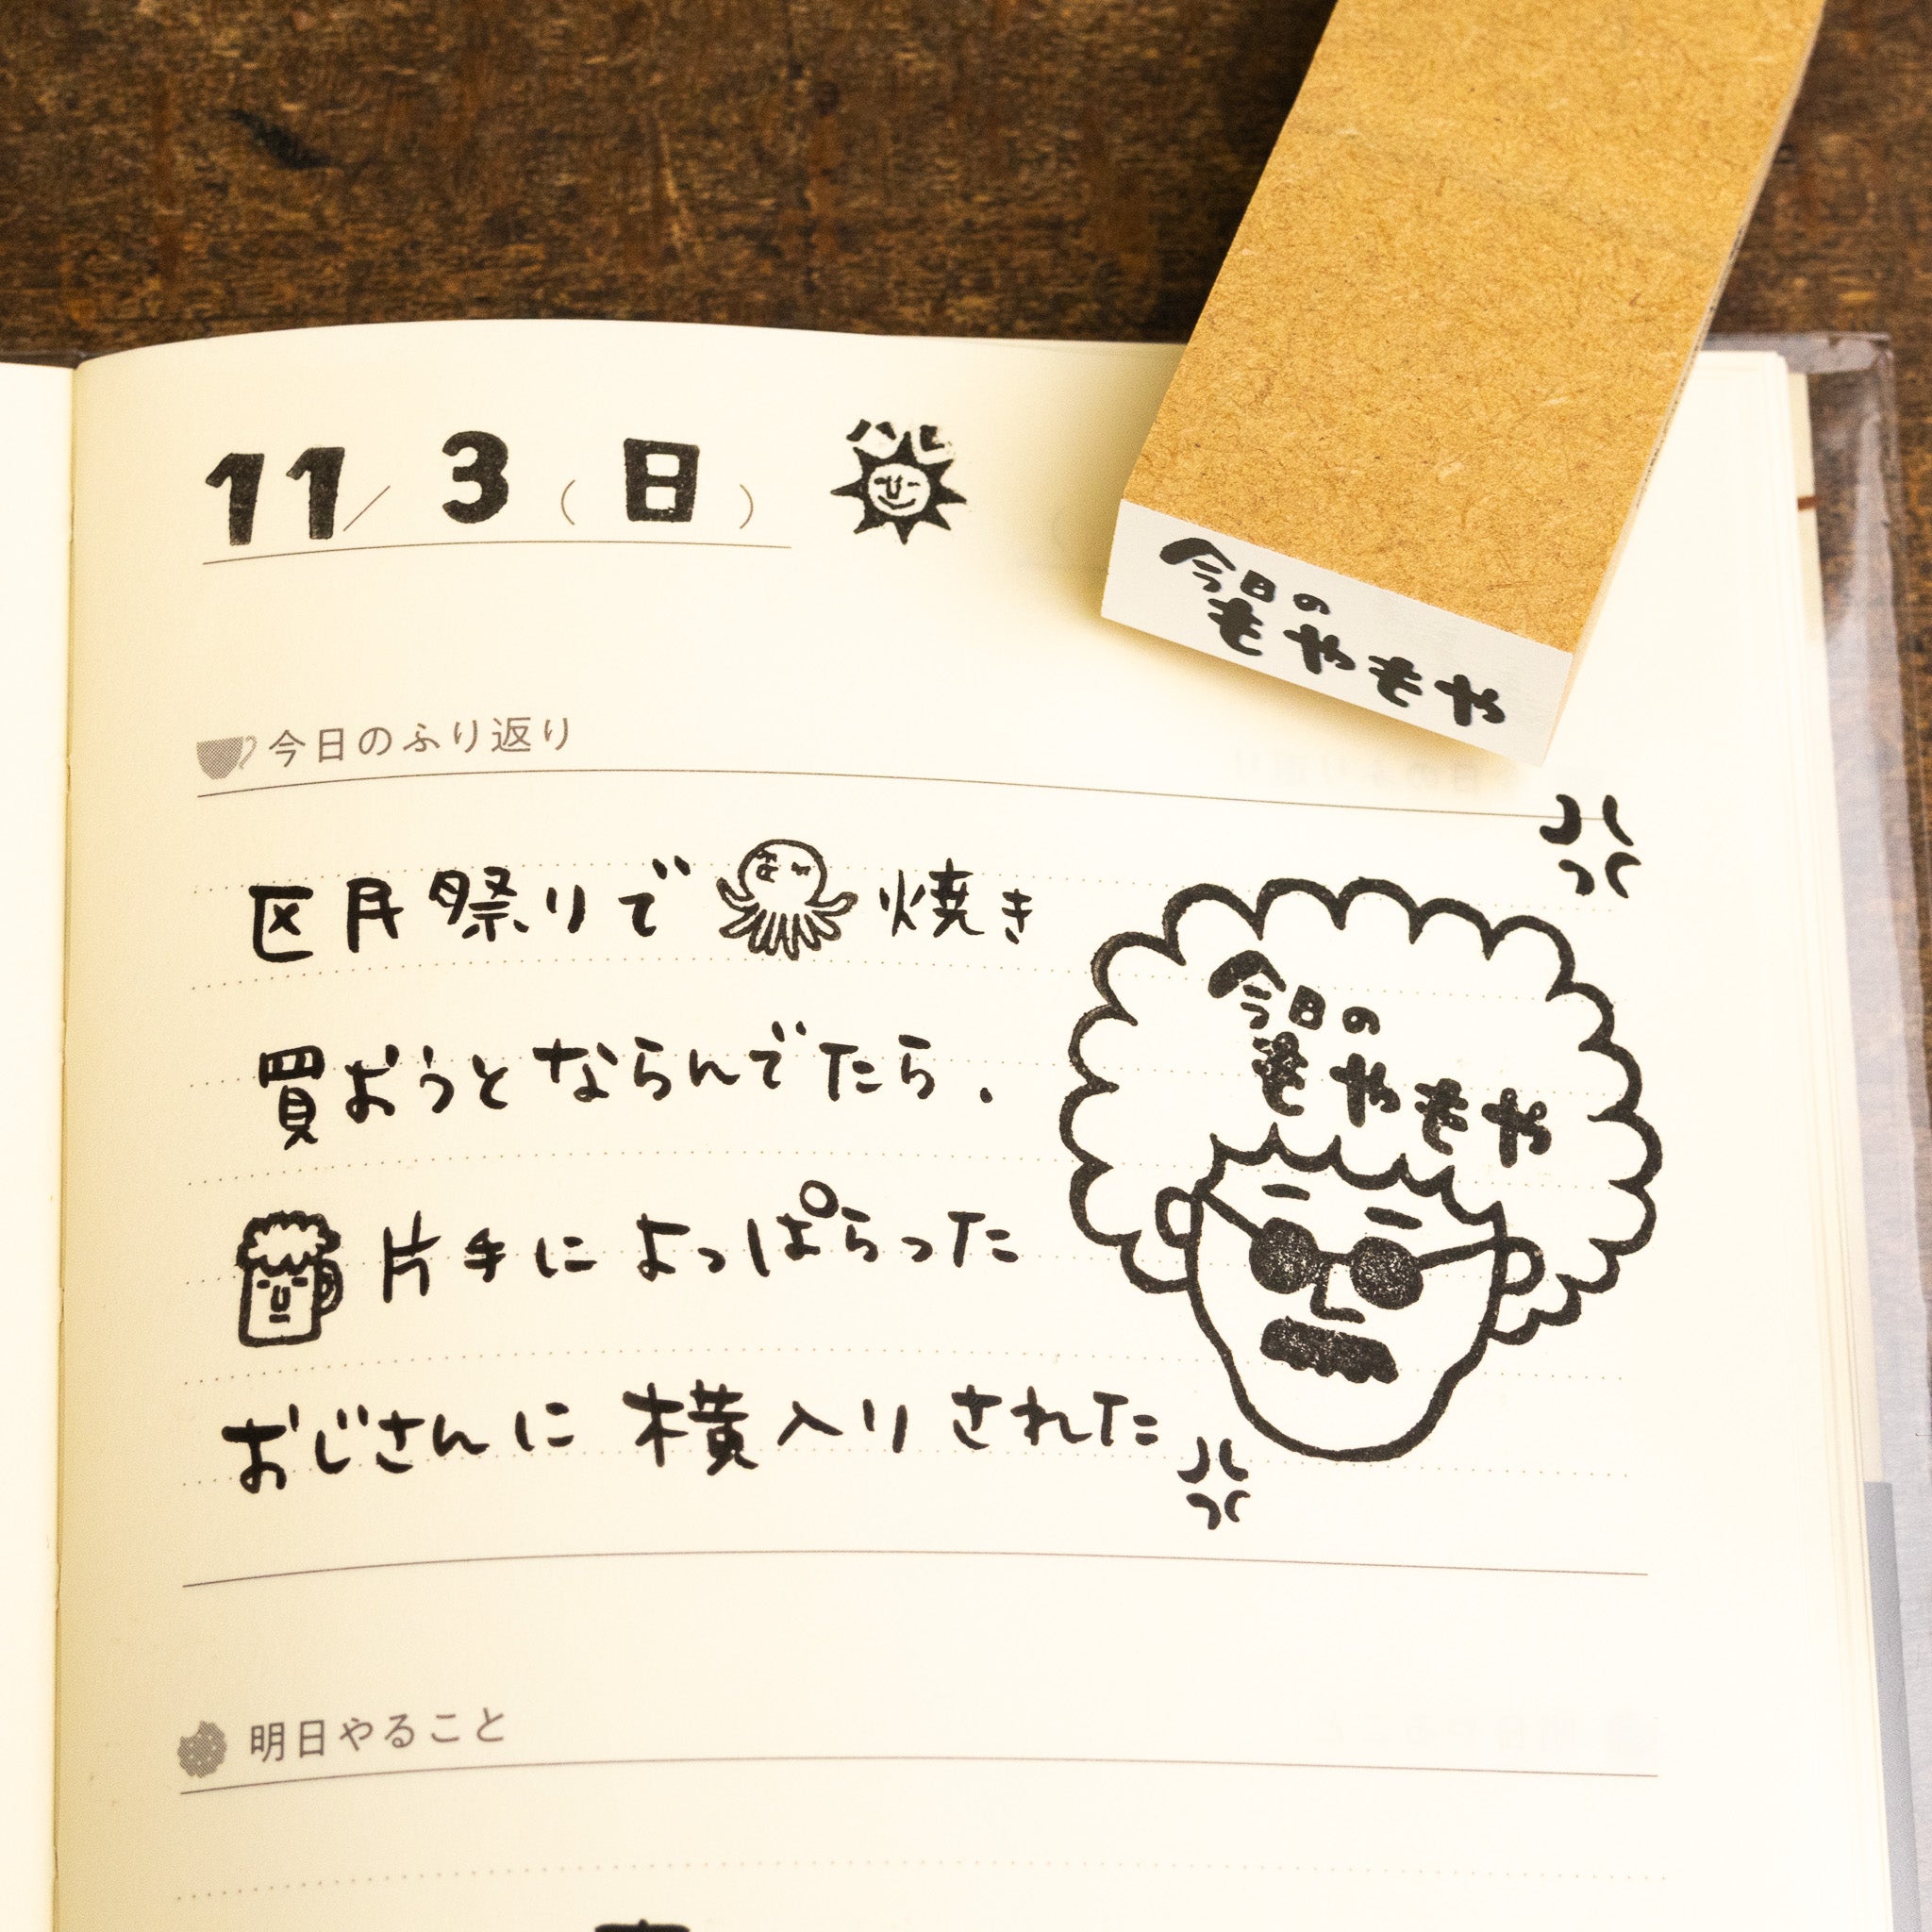 11/3(日)
ハレ
今日の
もやもや
今日のふり返り
区民祭りで焼き
買おうとならんでたら、
片手によっぱらった
おじさんに横入りされた
今日の
もやもや
明日やること